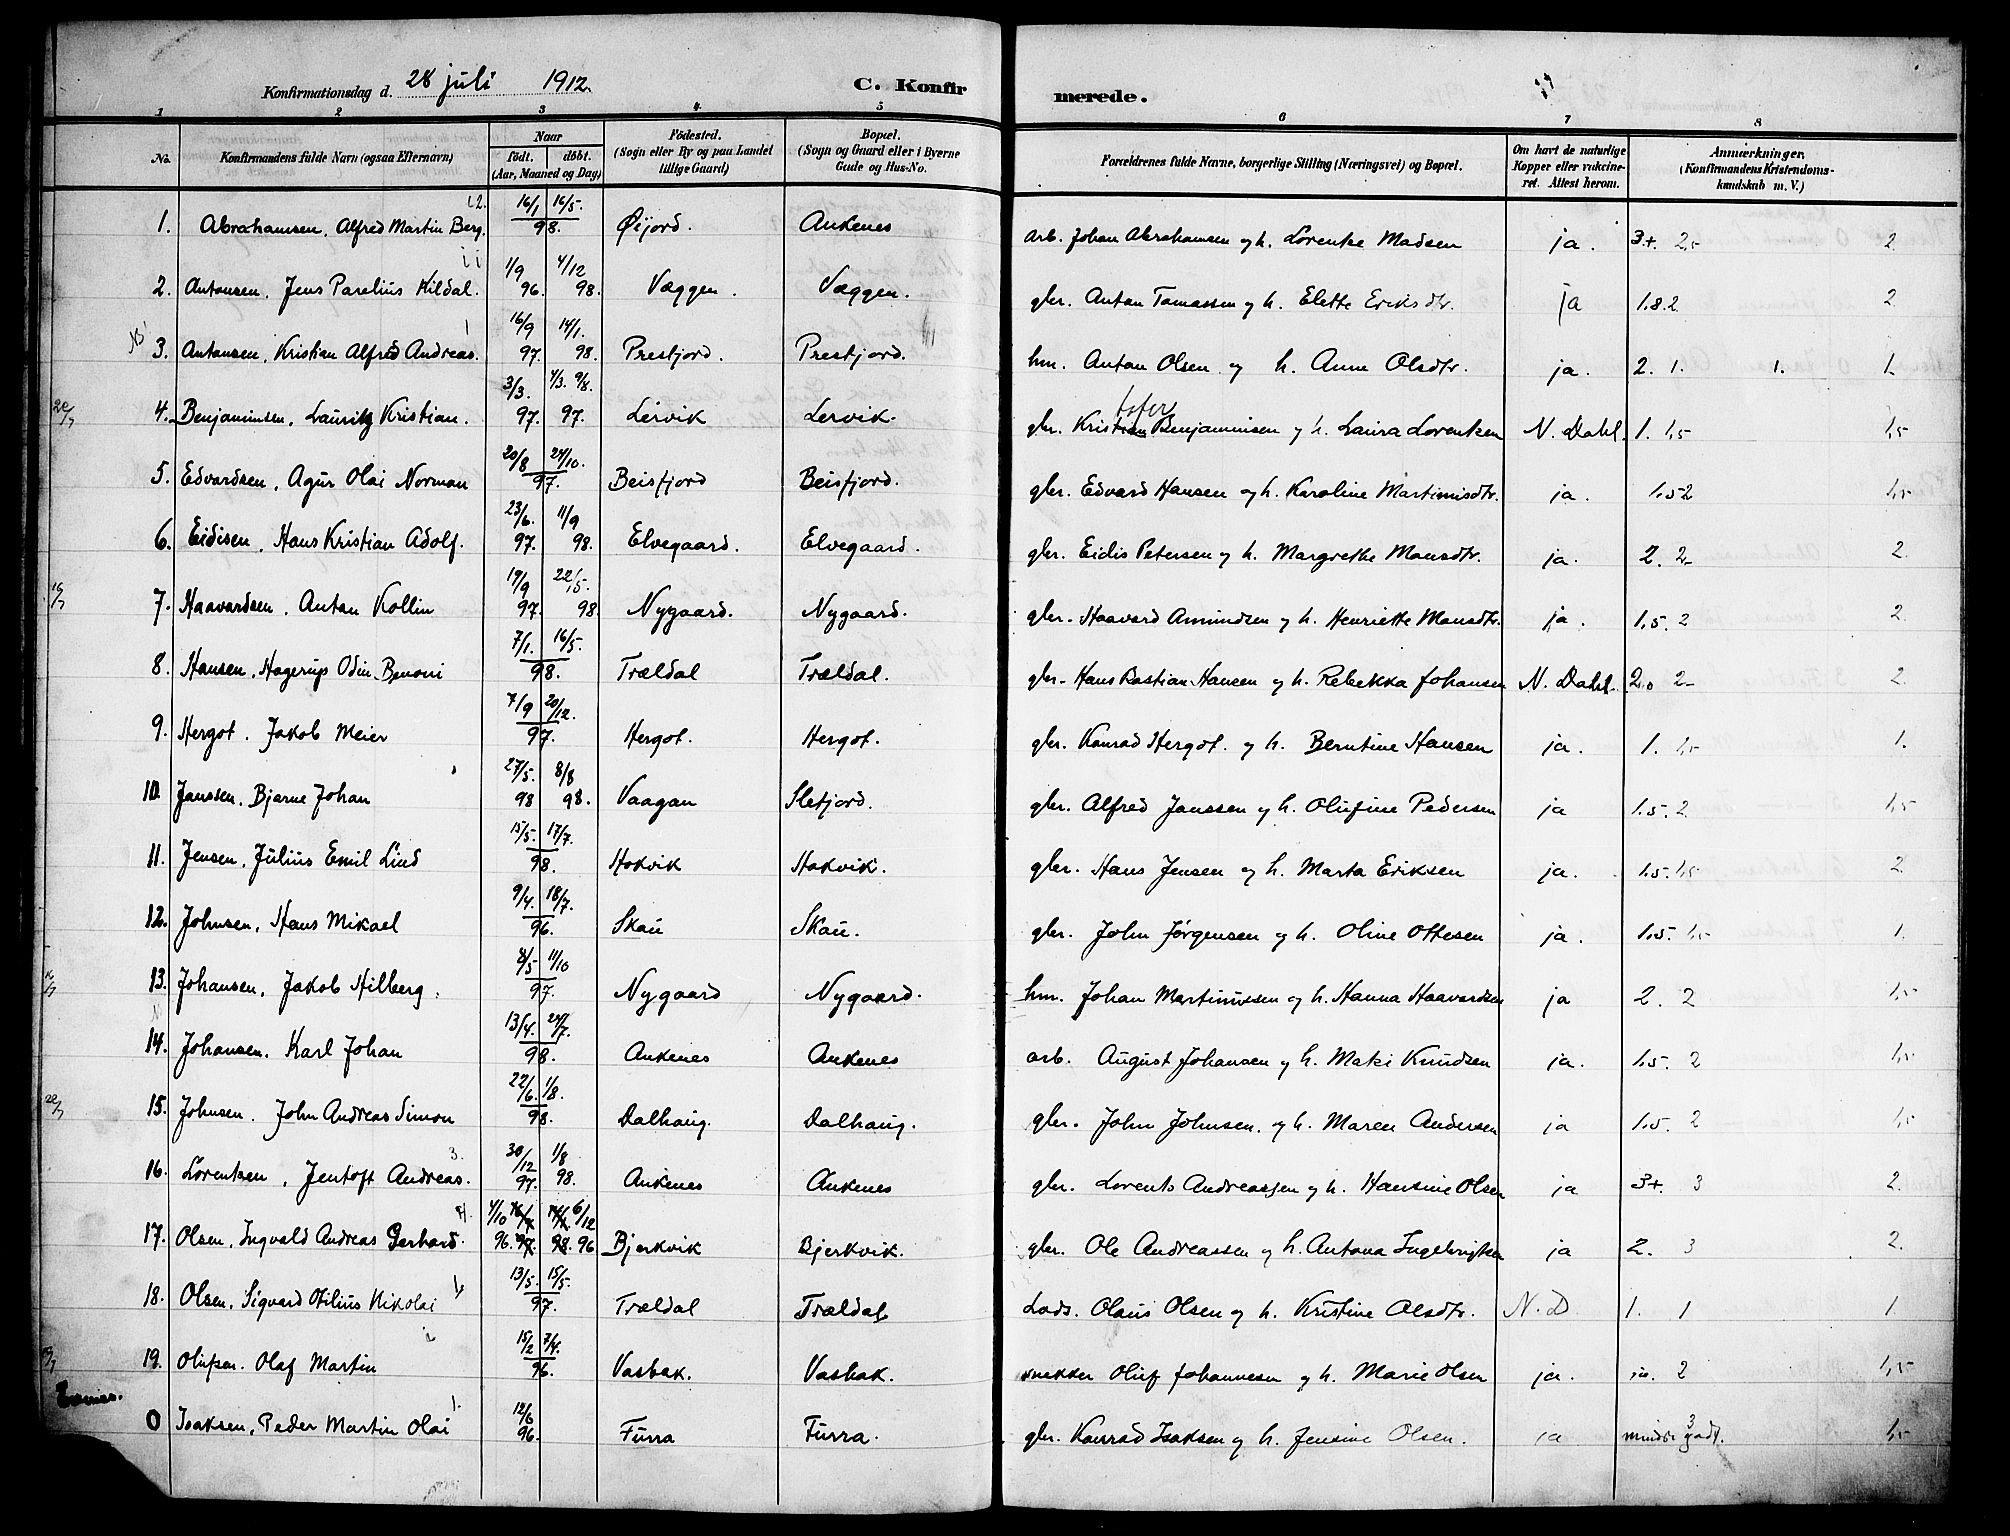 Konfirmationsdag d. 28 juli 1912. C. Konfirmerede.
1 2 3 4 5 6 7 8
No. Konfirmandens fulde Navn (ogsaa Efternavn) Naar født. døbt. (Aar, Maaned og Dag) Fødested. (Sogn eller By og paa Landet tillige Gaard) Bopæl. (Sogn og Gaard eller i Byerne Gade og Hus-No. Forældrenes fulde Navne, borgerlige Stilling (Næringsvei) og Bopæl. Om havt de naturlige Kopper eller vaccineret. Attest herom. Anmærkninger. (Konfirmandens Kristendomskundskab m. V.)
1. Abrahamsen, Alfred Martin Berg. 16/1 16/5. 98. Øijord. Ankenes arb. Johan Abrahamsen og h. Lorentse Madsen ja. 3+. 2,5 2
2. Antonsen, Jens Parelius Hildal. 1/9 96. 4/12 98. Væggen. Væggen. gbr. Anton Tomassen og h. Elette Eriksdtr. ja 1.8.2 2
3. Antonsen, Kristian Alfred Andreas. 16/9 97. 14/1. 98. Prestjord. Prestjord. hm. Anton Olsen og h. Anne Olsdtr. ja. 2. 1. 1. 1
20/7 4. Benjaminsen, Lauritz Kristian. 3/3. 97. 4/3. 9/8. 97. Lervik Lervik. gbr. Kristofer Benjaminsen og h. Laura Lorentsen N. Dahl. 1. 1,5 1,5
5. Edvardsen, Agur Olai Norman 20/8 24/10. 97. Beisfjord Beisfjord. gbr. Edvard Hansen og h. Karoline Martinusdtr. ja. 1.5 2 1,5
6. Eidisen, Hans Kristian Adolf. 23/6. 97. 11/9 98. Elvegaard. Elvegaard. gbr. Eidis Petersen og h. Margrethe Monsdtr. ja. 2. 2 2.
19/7 7. Haavardsen, Anton Kollin 19/9 97. 22/5. 98 Nygaard. Nygaard. gbr. Haavard Amundsen og h. Henriette Monsdtr. ja. 1.5. 2 2.
8. Hansen, Hagerup Odin Benoni 7/1. 16/5. 98. Trældal Trældal. gbr. Hans Bastian Hansen og h. Rebekka Johansen N. Dahl. 2. 2 2.
9. Hergot. Jakob Meier 7/9 20/12. 97. Hergot. Hergot. gbr. Konrad Hergot. og h. Berntine Hansen ja. 1. 1,5 1.
10. Janssen, Bjarne Johan 27/5. 98 8/8 98. Vaagan Sletjord. gbr. Alfred Janssen og h. Olufine Pedersen ja 1.5. 2 1,5
11. Jensen, Julius Emil Lind 15/5. 17/7. 98. Hokvik Hokvik. gbr. Hans Jensen og h. Marta Eriksen ja. 1.5. 1,5 2.
12. Johnsen, Hans Mikael 9/4. 18/7. 96. Skau Skau. gbr. John Jørgensen og h. Oline Ottesen ja. 1.5. 1,5 1.
13. Johansen, Jakob Hilberg. 8/5 11/10 97. Nygaard Nygaard. hm. Johan Martinussen og h. Hanna Haavardsen ja 2. 2 1,5
14. Johansen, Karl Johan 13/4. 24/7. 98. Ankenes Ankenes arb. August Johansen og h. Maki Knudsen ja. 1.5. 2 1,5
20/7 15. Johnsen. John Andreas Simon 22/6. 1/8. 98. Dalhaug. Dalhaug. gbr. John Johnsen. og h. Maren Andersen ja 1.5. 2 1,5
16. Lorentsen, Jentoft Andreas. 3. 30/12 97. 1/8 98. Ankenes Ankenes gbr. Lorents Andreassen og h. Hansine Olsen ja 3+. 3 2.
17. Olsen, Ingvald Andreas Gerhard. 4/10 96. 6/12 96 Bjerkvik Bjerkvik. gbr. Ole Andreassen og h. Antona Ingebrigtsen ja 2. 3 2.
18. Olsen, Sigvard Otilius Nikolai 13/5. 15/5. 97. Trældal Trældal Lods. Olaus Olsen og h. Kristine Olsdtr. N. D. 1. 1 1
19. Olufsen. Olaf Martin 15/2 7/4. 96. Vasbak. Vasbak. snekker Oluf Johannesen og h. Marie Olsen ja. 2 1,5
0 Isaksen, Peder Martin Olai 12/6 96. Furra Furra. gbr. Konrad Isaksen og h. Jensine Olsen. ja mindre godt. 3 1,5